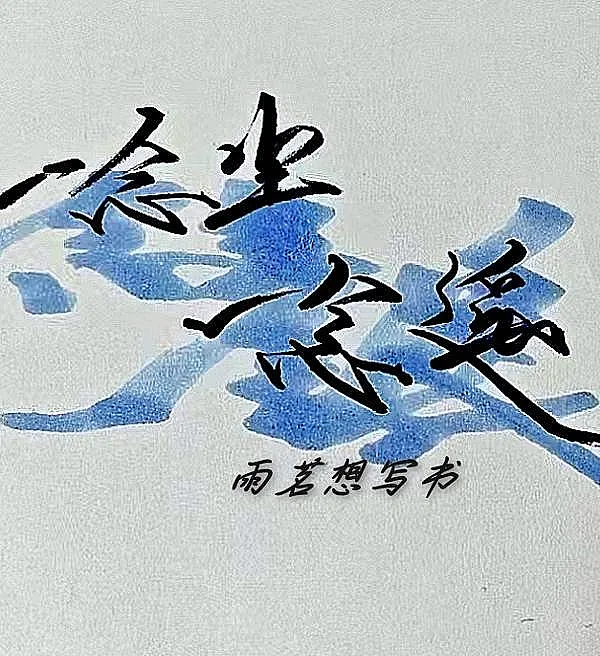 一念尘
一念遥
雨茗想写书